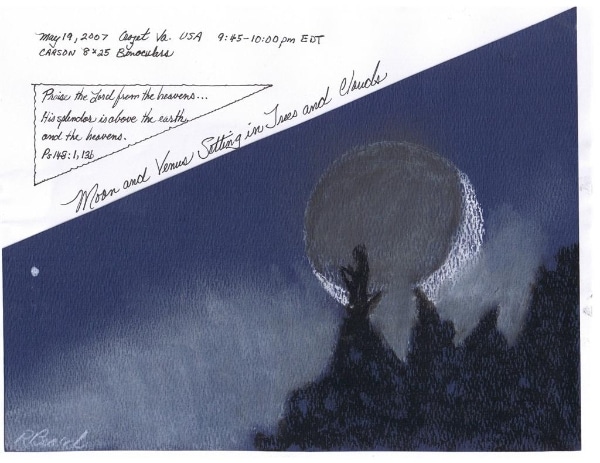 May 19, 2007 Va. USA 9:45-10:00 pm EDT
CARSON 8x25 Binoculars
Praise the Lord from the heavens...
His splendor is above the earth
and the heavens.
Ps 148:1, 13b
Moon and Venus Setting in Trees and Clouds